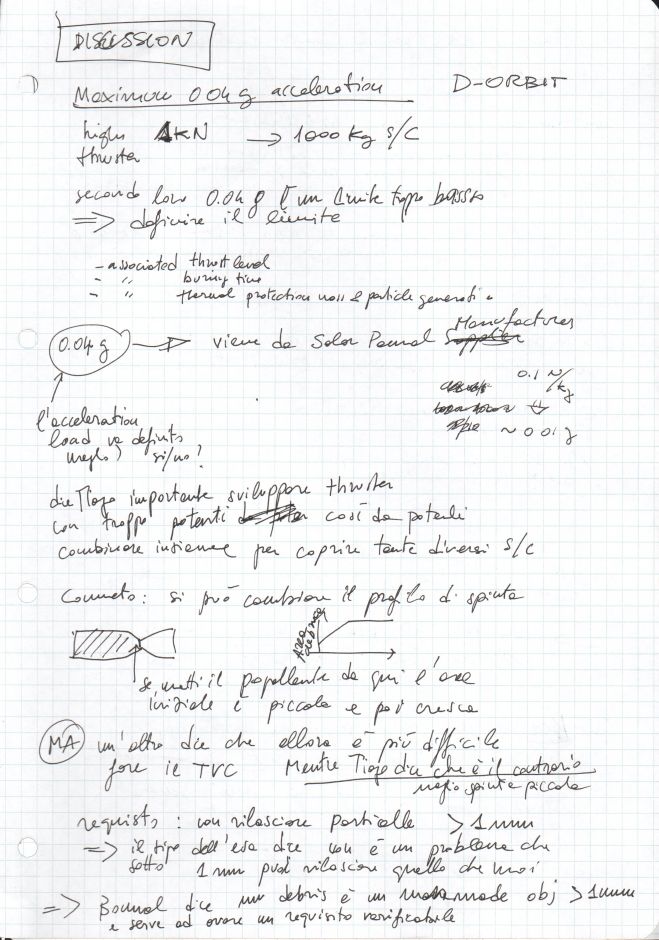 DISCUSSION
Maximum 0.04 g acceleration D-ORBIT
high 1kN → 1000 kg S/C
thruster
secondo loro 0.04 g è un limite troppo basso
⇒ definire il limite
- associated thrust level
- " burning time
- " thermal protection mass & particle generation
0.04 g → viene da Solar Pannel Manufactures
0.1 N/kg
~ 0.01 g
l'acceleration
load va definito
meglio) si/no?
dice Tiago importante sviluppare thruster
non troppo potenti così da poterli
combinare insieme per coprire tanti diversi S/C
Commento: si può cambiare il profilo di spinta
Area
se metti il propellente da qui l'area
iniziale è piccola e poi cresce
MA un'altro dice che allora è più difficile
fare il TVC Mentre Tiago dice che è il contrario
meglio spinta piccola
requisito: non rilasciare particelle > 1 mm
⇒ il tipo dell'esa dice non è un problema che
sotto 1 mm puoi rilasciare quello che vuoi
⇒ dice debris è un manmade obj > 1mm
e serve ad avere un requisito verificabile